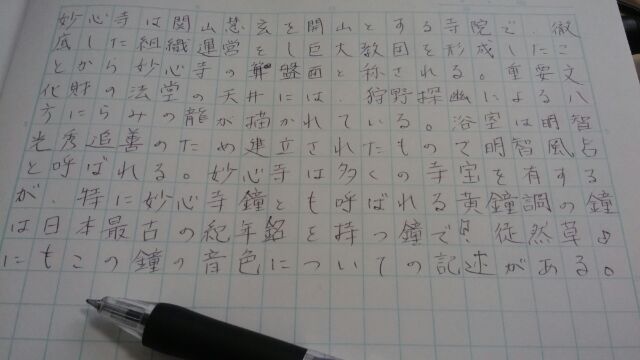 妙心寺は関山慧玄を開山とする寺院で、徹
底した組織運営をし巨大教団を形成したこ
とから妙心寺の算盤面と称される。重要文
化財の法堂の天井には、狩野探幽による八
方にらみの龍が描かれている。浴室は明智
光秀追善のため建立されたもので明智風呂
と呼ばれる。妙心寺は多くの寺宝を有する
が、特に妙心寺鐘とも呼ばれる黄鐘調の鐘
は日本最古の紀年銘を持つ鐘で、徒然草
にもこの鐘の音色についての記述がある。